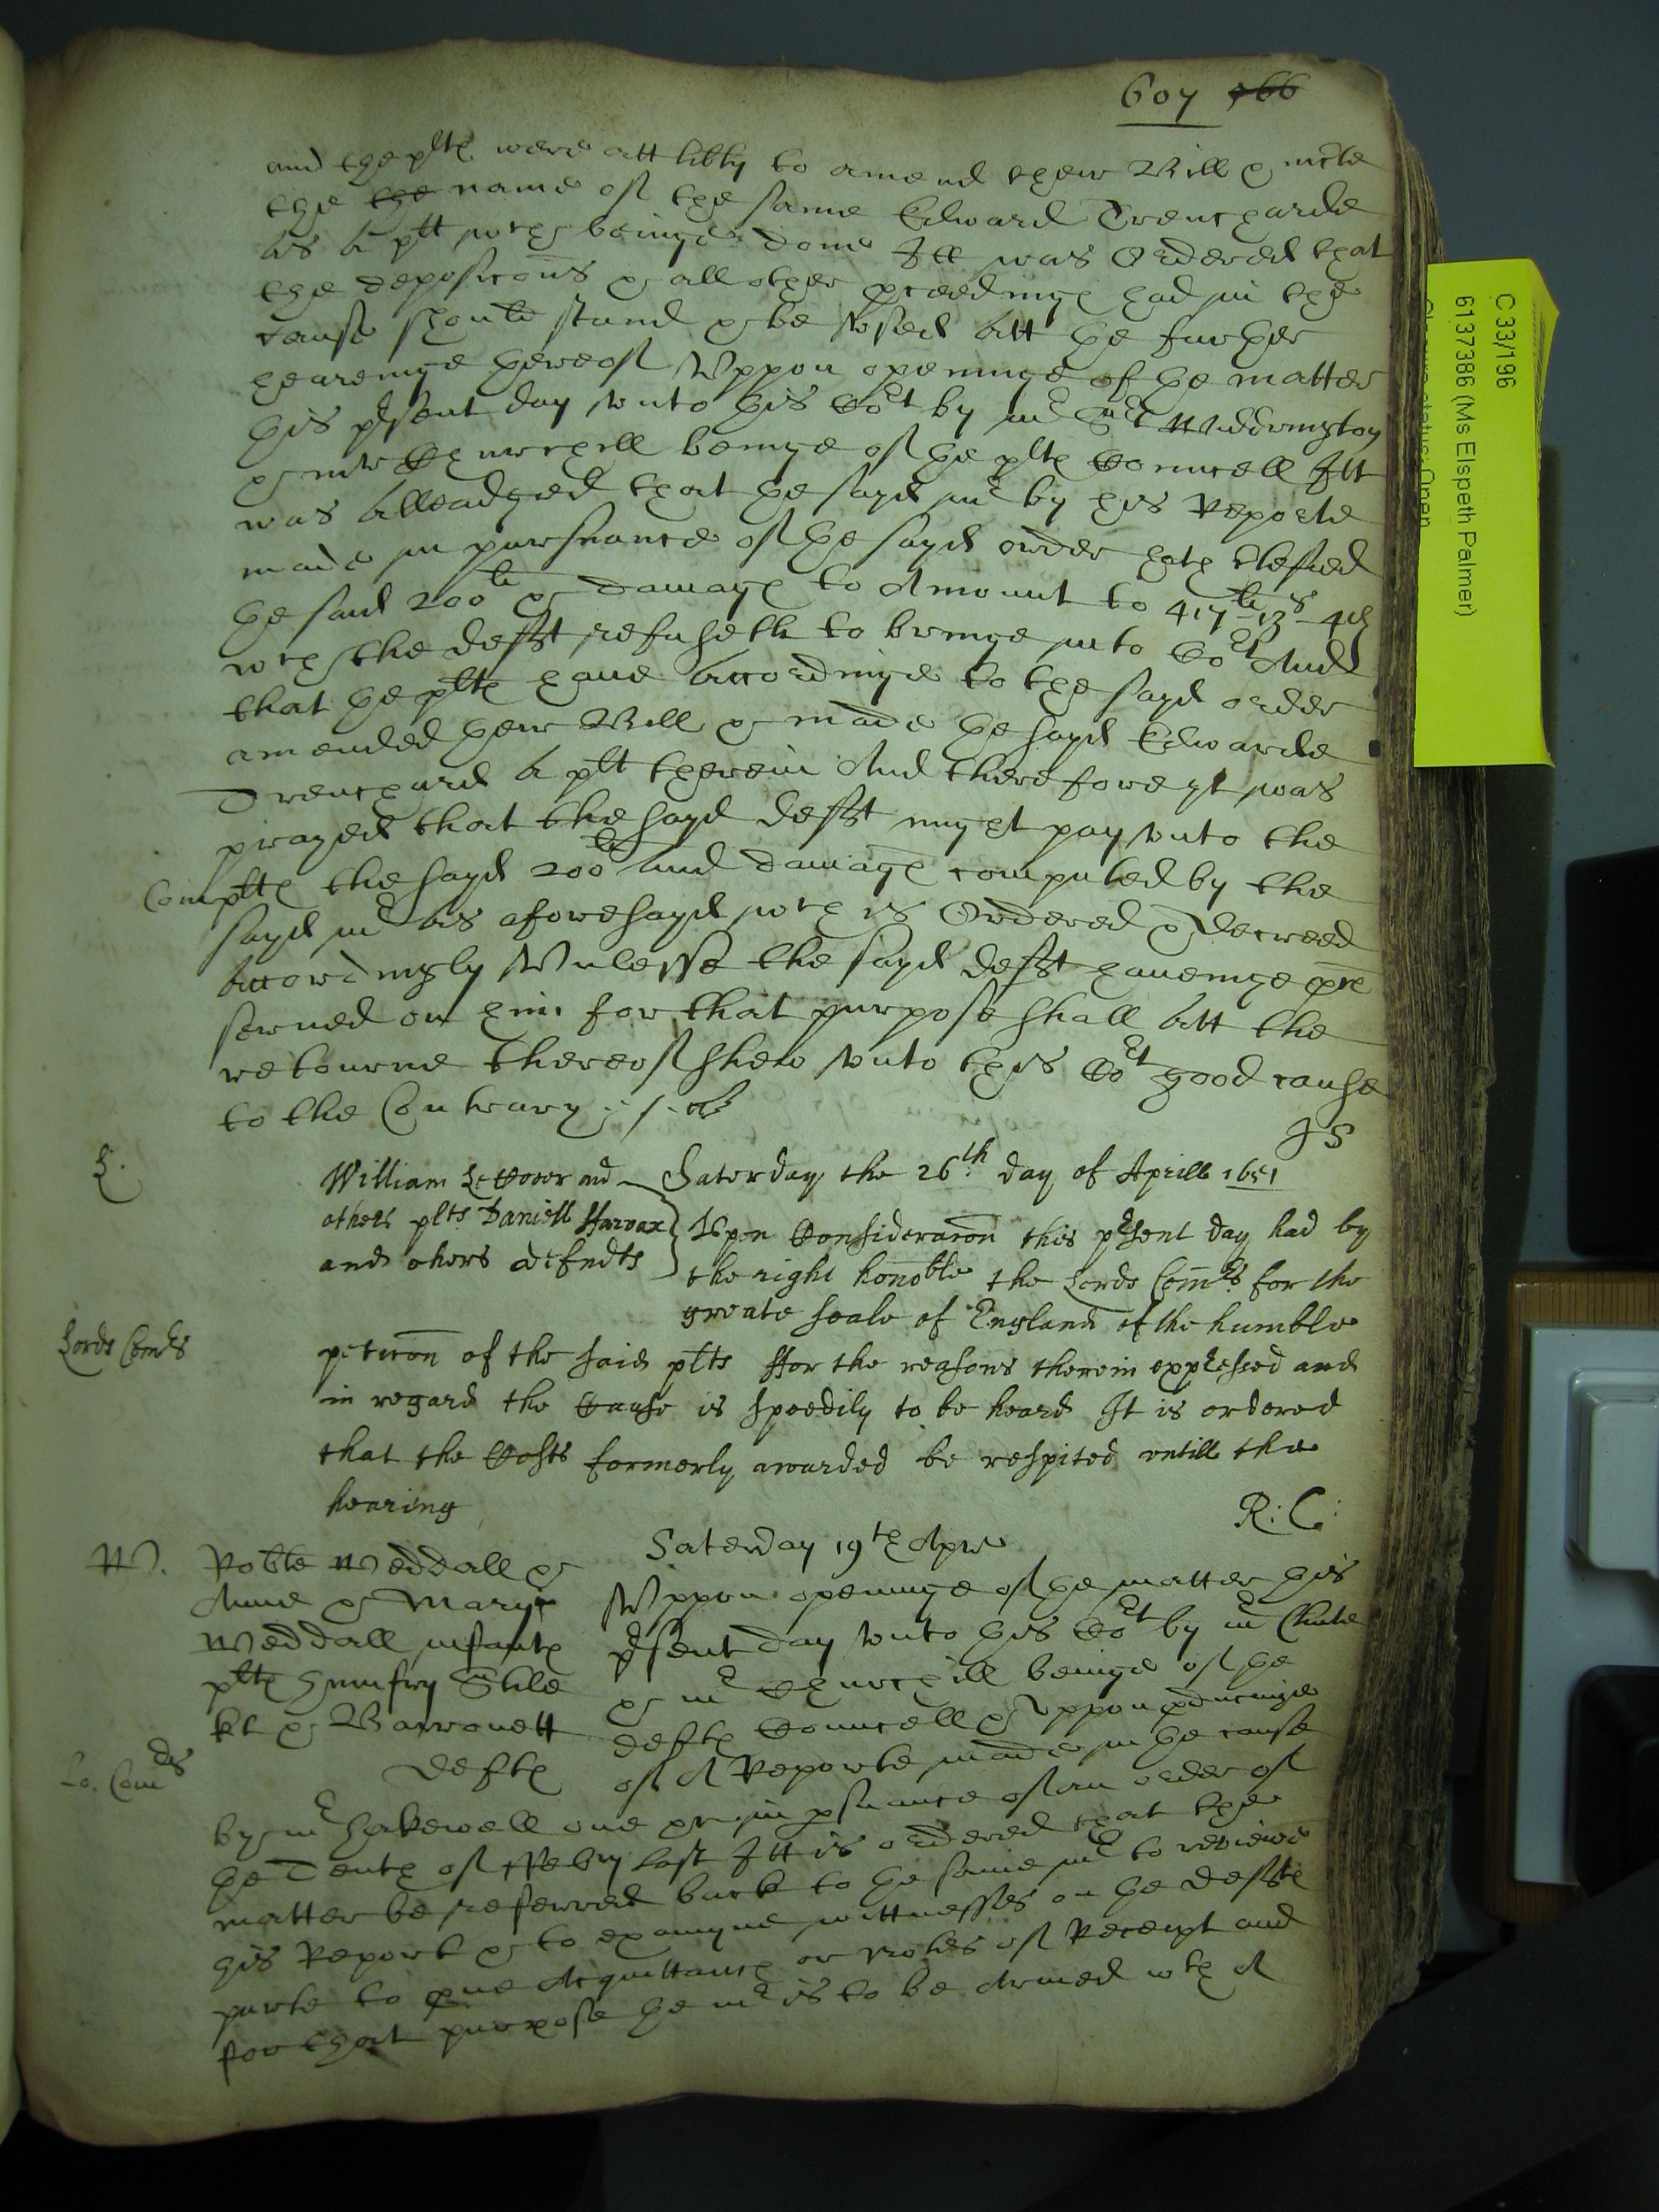 607 366
and the plts were att libty to amend their Bill & make
the the name of the same Edward Trencharde
as a plt wch beinge done Itt was Ordered that
the deposicons & all other pceedings had in the
cause should stand & be used att the further
heareinge thereof Uppon openinge of the matter
this psent day unto this Cort by mr Srt Widdrington
& mr Churchill beinge of the plts Councell Itt
was alleadged that the sayd mr by his Reporte
made in pursuance of the sayd order hath
the said 200li & damages to Amount to 417li-13s-4d
wch the defft refuseth to bringe into Cort And
that the plts have accordinge to the sayd order
amended their Bill & made the sayd Edwarde
Trenchard a plt therein And therefore yt was
prayed that the sayd defft might pay unto the
Complts the sayd 200li and damages computed by the
sayd mr as aforesayd wch is Ordered & decreed
accordingly Unlesse the sayd defft haveinge pces
served on him for that purpose shall att the
retourne thereof shew unto this Cort good cause
to the Contrary
JS
L.
William and Saterday the 26th day of Aprill 1651
others plts Daniell Harvax
and others defendts
Upon Consideracon this psent day had by
the right honoble the Lords Comrs for the
greate seale of England of the humble
Lords Comrs
peticon of the said plts ffor the reasons therein expressed and
in regard the Cause is speedily to be heard It is ordered
that the Costs formerly awarded be respited untill the
hearing
R: C:
Saterday 19th Apr
W. Robte Weddall &
Anne & Mary
Weddall infants
plts Humfry Stile
kt & Barronett
Defts
Uppon openinge of the matter this
psent day unto this Cort by mr Chute
& mr Churchill beinge of the
defts Councell & uppon pducinge
of A Reporte made in the cause
Lo. Comrs
by mr Hakewell one &c in psuance of an order of
the Tenth of ffebry last Itt is ordered that the
matter be referred back to the same mr to reviewe
his Report & to examyne wittnesses on the deffts
parte to pve Acquittances or notes of Receipt and
for that purpose the mr is to be Armed wth A
C 33/196
6137386 (Ms Elspeth Palmer)